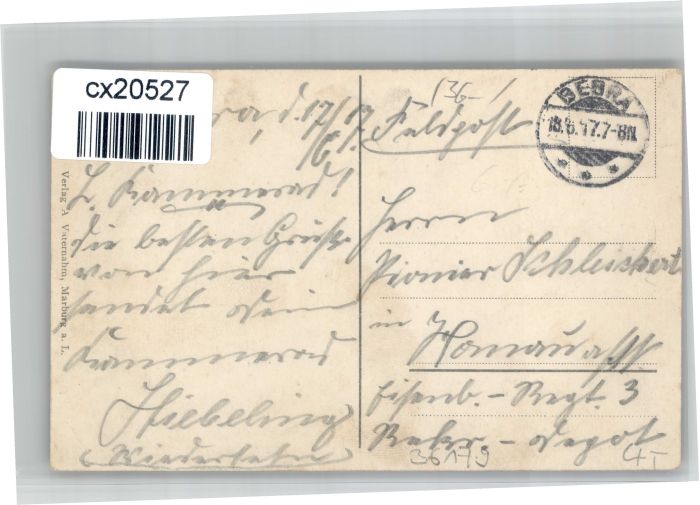 cx20527
d. 17/6. 17.
L. Kammerad!
die besten Grüße
von hier
sendet dein
Kammerad
Hiebeling
(Wiedersehn)
Verlag A. Vaternahm, Marburg a. L.
Feldpost
BEBRA
18.6.17.7-8N.
Herrn
Pionier Schleichert
in Hanau a/M.
Eisenb.-Regt. 3
Rekr.-Depot
36179